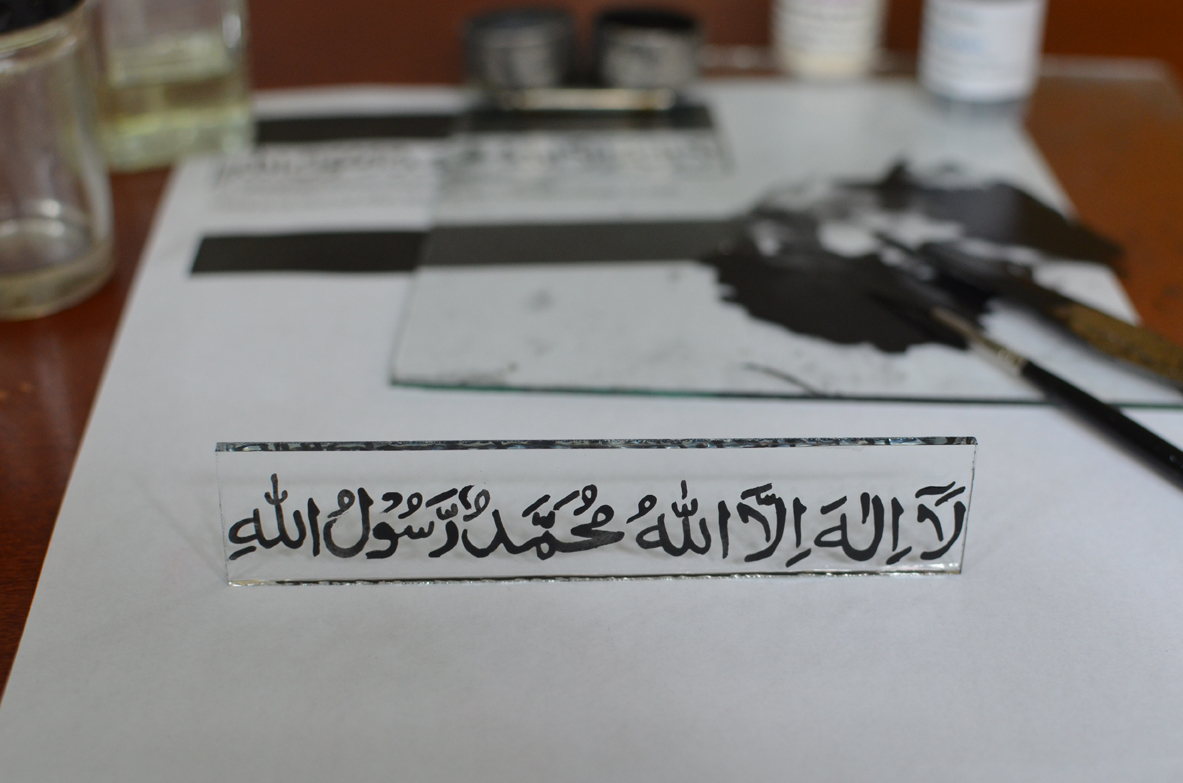 لَآ اِلٰهَ اِلَّا اللّٰهُ مُحَمَّدٌ رَّسُوْلُ اللّٰهِ